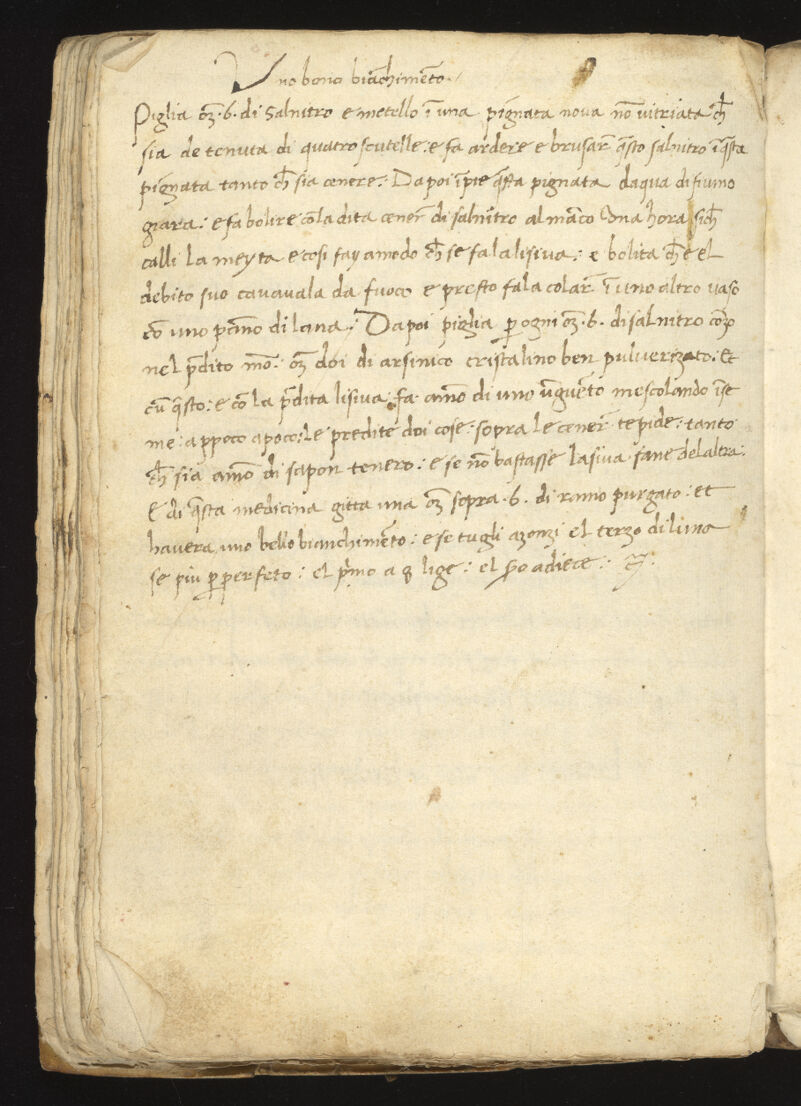 Uno bono biāchimēto.
Piglia oʒ. 6. di Salnitro e metello ī una pignata nova nō vitriata ch̄
sia de tenuta di quatro scutelle: e fa ardere e brusar̄ q̄sto salnitro ī q̄sta
pignata tanto ch̄ sia cenere: Dapoi īpie q̄sta pignata daqua di fiumo
giara: e fa bolire cō la dita cener̄ di salnitro al māco una hora sich̄
calli la meyta e cosi fay amodo ch̄ se fa la lisiva: e bolita ch̄ e el
debito suo cavavala da fuoco e presto fala colar̄ ī uno altro vaso
cō uno pāno di lana: Dapoi piglia p̄ ogni oʒ. 6. di salnitro
nel p̄dito mō: oʒ doi di arsinico cristalino ben pulverizato: Et
cū q̄sto: e cō la p̄dita lisiva fa amō di uno ūguēto mescolando īse
me: appoco apoco: le predite doi cose: sopra le cener̄ tepide: tanto
ch̄ sia amō di sapon tenero: e se nō bastasse la siva fane del altra:
E di q̄sta medicina gitta una oʒ sopra. 6. di ramo purgato: et
havera uno bello bianchimēto: e se tu gli azonzi el terzo di luna
se piu p̄ perfeto: el p̄mo a 8 lige: el s̄do a diece: